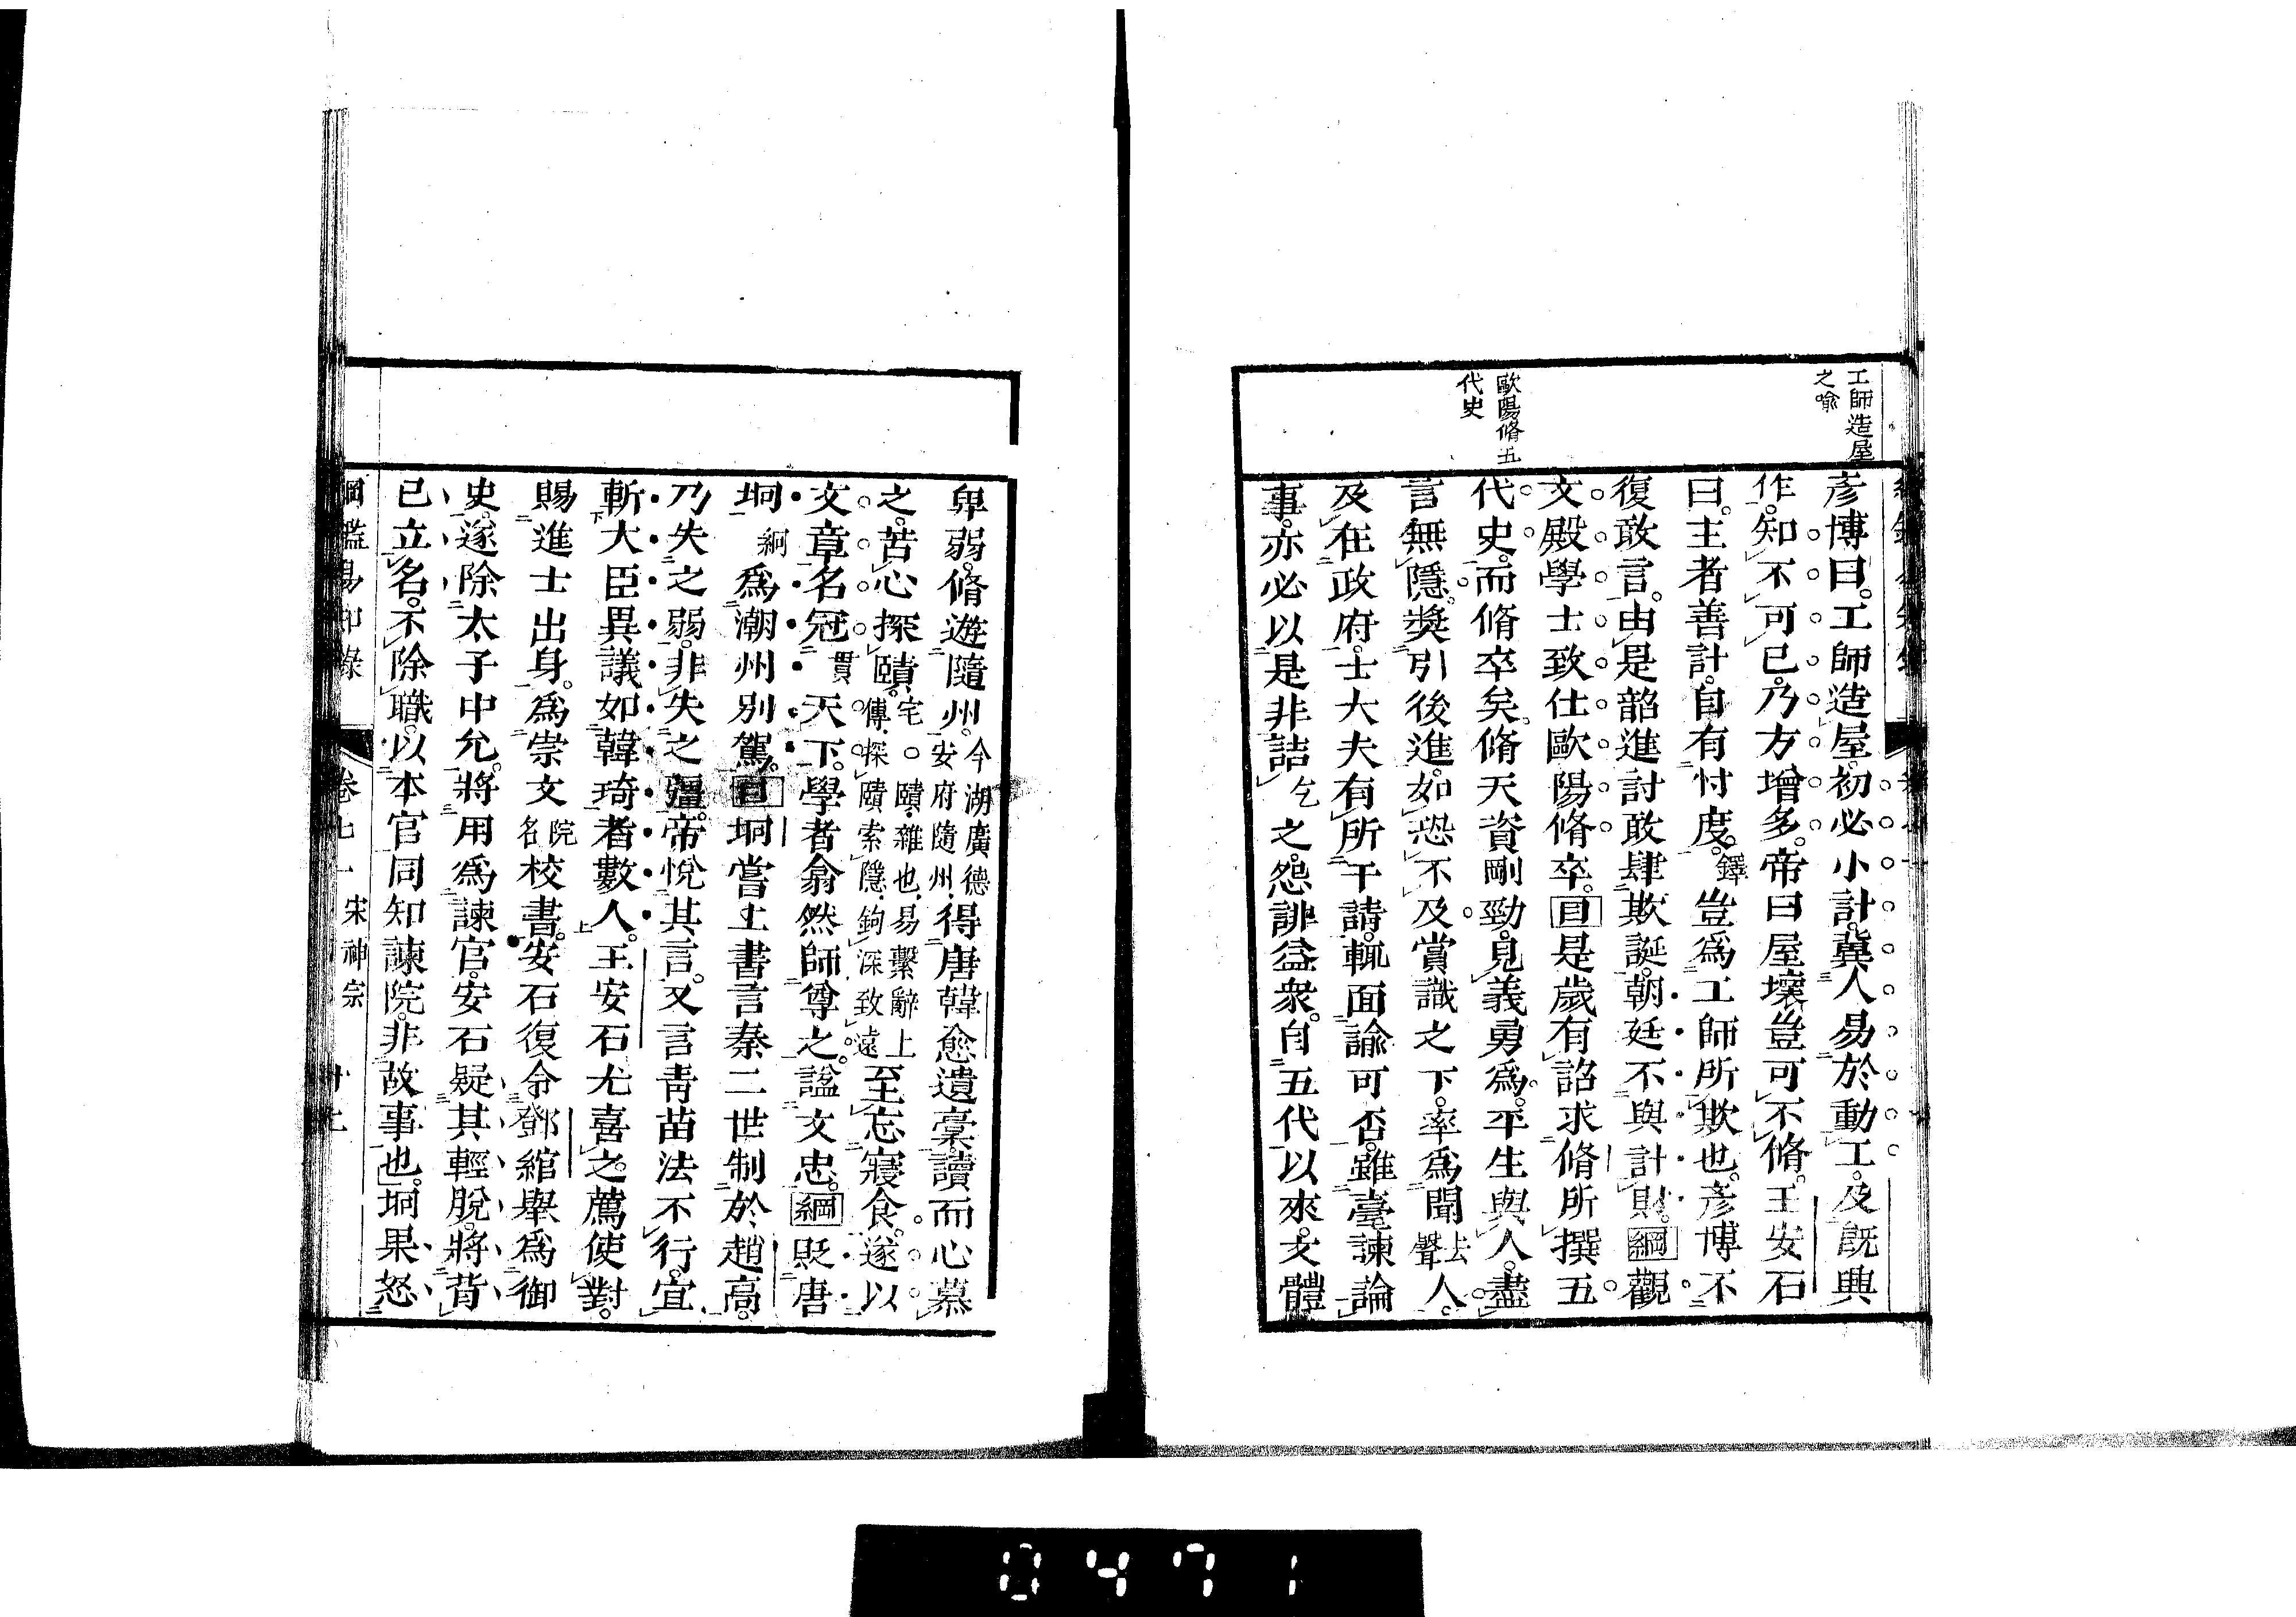 工師造屋
之喻
歐陽脩五
代史
彥博曰。工師造屋。初必小計。冀人易於動工。及既興
作。知不可已。乃方增多。帝曰屋壞豈可不脩。王安石
曰。主者善計。自有忖度。鐸豈爲工師所欺也。彥博不
復敢言。由是韶進討敢肆欺誕。朝廷不與計財。綱觀
文殿學士致仕歐陽脩卒。目是歲有詔求脩所撰五
代史。而脩卒矣。脩天資剛勁。見義勇爲。平生與人。盡
言無隱。獎引後進。如恐不及。賞識之下。率爲聞去聲人。
及在政府。士大夫有所干請。輒面諭可否。雖臺諫論
事。亦必以是非詰乞之。怨誹益衆。自五代以來。文體
卑弱。脩遊隨州。今湖廣德安府隨州。得唐韓愈遺稾。讀而心慕
之。苦心探賾。宅○賾。雜也。易繫辭上傳。探賾索隱。鉤深致遠至忘寢食。遂以
文章名冠貫天下。學者翕然師尊之。諡文忠。綱貶唐
坰絅爲潮州別駕。目坰嘗上書言秦二世制於趙高。
乃失之弱。非失之彊。帝悅其言。又言靑苗法不行。宜
斬大臣異議如韓琦者數人。王安石尤喜之。薦使對。
賜進士出身。爲崇文院名校書。安石復令鄧綰舉爲御
史。遂除太子中允。將用爲諫官。安石疑其輕脫。將背
已立名。不除職。以本官同知諫院。非故事也。坰果怒
綱鑑易知錄 卷七一 宋神宗